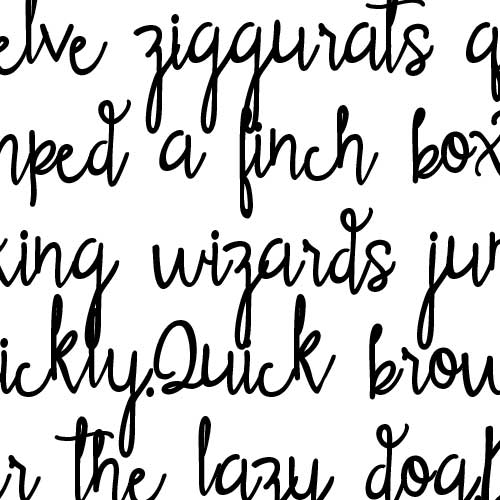 elve ziggurats q
mped a finch box
king wizards jum
ickly.Quick brow
er the lazy dogh